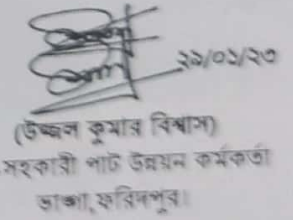 ২৯/০১/২৩
(উজ্জ্বল কুমার বিশ্বাস)
সহকারী পাট উন্নয়ন কর্মকর্তা
ভাঙ্গা, ফরিদপুর।